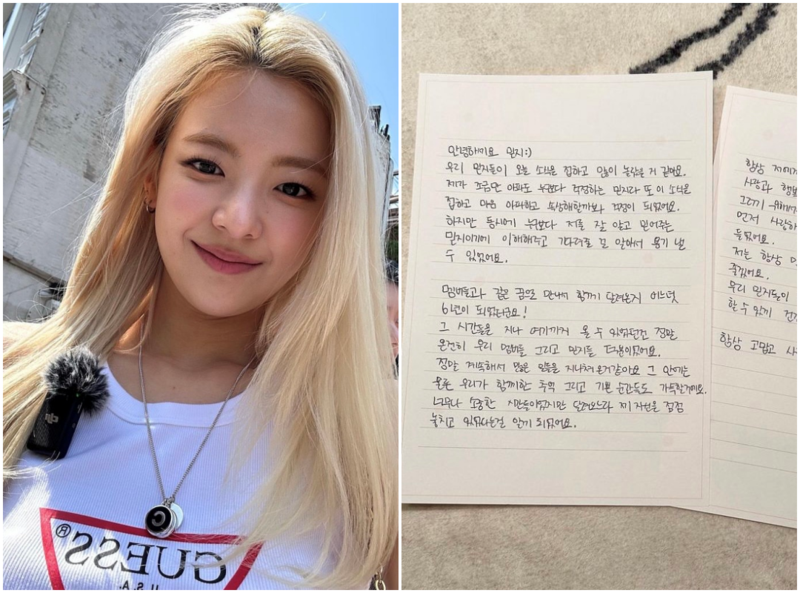 GUESS®
U.S.A.
안녕하세요 믿지:)
우리 믿지들이 오늘 소식을 접하고 많이 놀랐을 거 같아요.
제가 조금만 아파도 누구보다 걱정하는 믿지라 또 이 소식을
접하고 마음 아파하고 속상해할까봐 걱정이 되었어요.
하지만 동시에 누구보다 저를 잘 알고 믿어주는
믿지이기에 이해해주고 기다려줄 걸 알아서 용기 낼
수 있었어요.
멤버들과 같은 꿈으로 만나서 함께 달려온지 어느덧
6년이 되었더라구요!
그 시간들을 지나 여기까지 올 수 있었던건 정말
온전히 우리 멤버들 그리고 믿지들 덕분이었어요.
정말 계속해서 많은 일들을 지나쳐온거같아요 그 안에는
물론 우리가 함께한 추억 그리고 기쁜 순간들도 가득한걸요.
너무나 소중한 시간들이었지만 달려오느라 제 자신을 점점
놓치고 있었다는걸 알게 되었어요.
항상 저에게
사랑과
그러기 위해서
먼저 사랑하
들었어요.
저는 항상
우리 믿지들이
할 수 있게
항상 고맙고 사